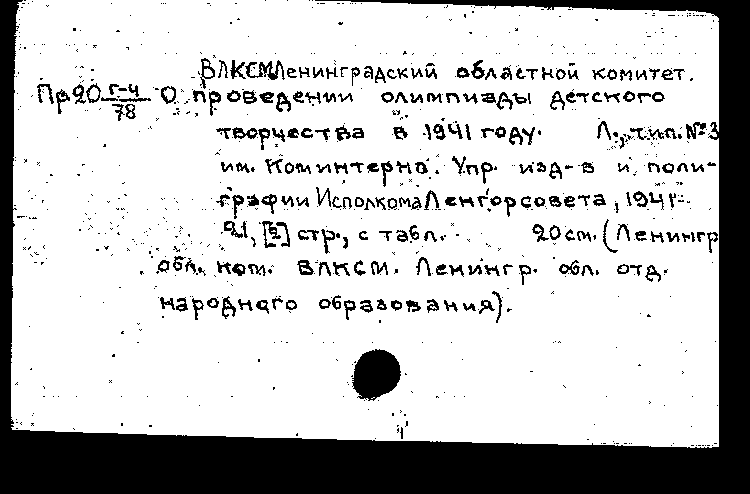 ВЛКСМ Ленинградский областной комитет.
Пр20 г-ч/78 О проведении олимпиады детского
творчества в 1941 году. Л., тип. №3
им. Коминтерна. Упр. изд-в и поли-
графии Исполкома Ленгорсовета, 1941.
21, [2] стр., с табл. 20 см. (Ленингр
обл. ком. ВЛКСМ. Ленингр. обл. отд.
народного образования).